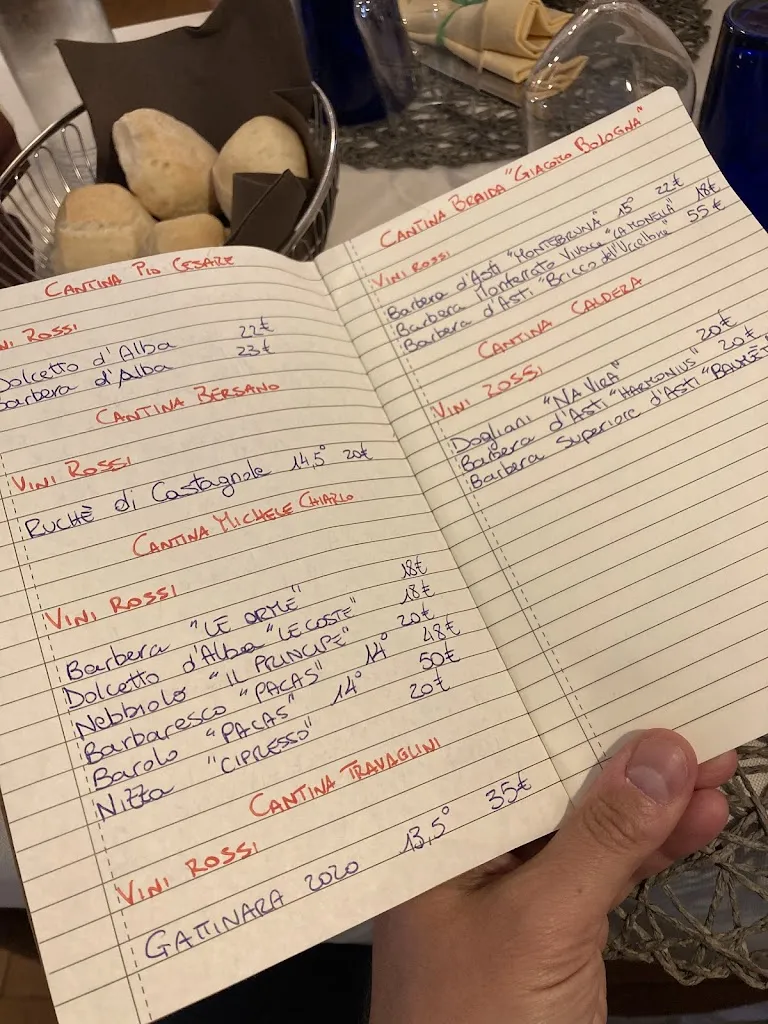 CANTINA PIO CESARE
VINI ROSSI
Dolcetto d'Alba 22€
Barbera d'Alba 23€
CANTINA BERSANO
VINI ROSSI
RUCHÈ di Castagnole 14,5° 20€
CANTINA MICHELE CHIARLO
VINI ROSSI
Barbera "LE ORME" 18€
Dolcetto d'Alba "LE COSTE" 18€
Nebbiolo "IL PRINCIPE" 20€
Barbaresco "PACAS" 14° 48€
Barolo "PACAS" 14° 50€
Nizza "CIPRESSO" 20€
CANTINA TRAVAGLINI
VINI ROSSI
GATTINARA 2020 13,5° 35€
CANTINA BRAIDA "GIACOMO BOLOGNA"
VINI ROSSI
Barbera d'Asti "MONTEBRUNA" 15° 22€
Barbera Monferrato Vivace "LA MONELLA" 18€
Barbera d'Asti "Bricco dell'Uccellone" 55€
CANTINA CALDERA
VINI ROSSI
Dogliani "NA VIRA" 20€
Barbera d'Asti "HARMONIUS" 20€
Barbera Superiore d'Asti